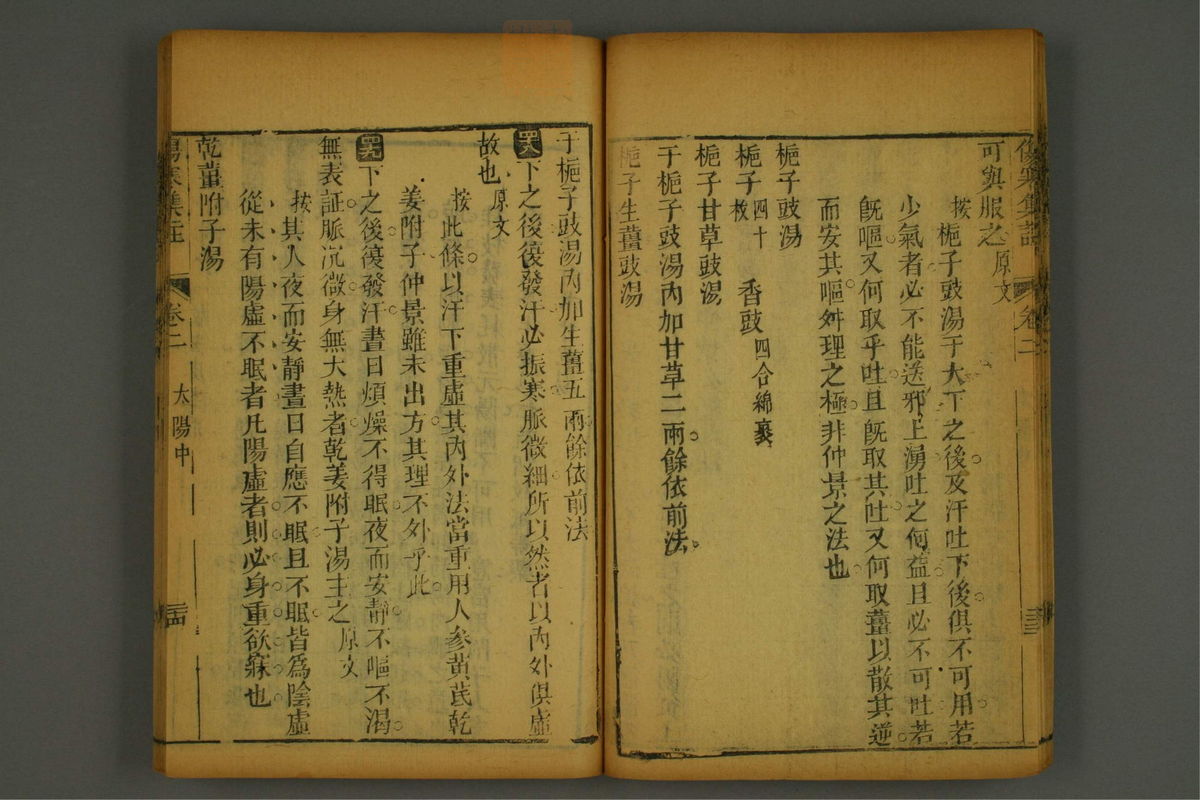 傷寒集註 卷二 三十三
可與服之原文
按梔子豉湯于大下之後及汗吐下後俱不可用若
少氣者必不能送邪上湧吐之何益且必不可吐若
旣嘔又何取乎吐且旣取其吐又何取薑以散其逆
而安其嘔舛理之極非仲景之法也
梔子豉湯
梔子四十枚 香豉四合綿裹
梔子甘草豉湯
于梔子豉湯內加甘草二兩餘依前法
梔子生薑豉湯
于梔子豉湯內加生薑五兩餘依前法
四八下之後復發汗必振寒脈微細所以然者以內外俱虛
故也原文
按此條以汗下重虛其內外法當重用人參黃芪乾
姜附子仲景雖未出方其理不外乎此
四九下之後復發汗晝日煩燥不得眠夜而安靜不嘔不渴
無表証脈沉微身無大熱者乾姜附子湯主之原文
按其人夜而安靜晝日自應不眠且不眠皆爲陰虛
從未有陽虛不眠者凡陽虛者則必身重欲寐也
乾薑附子湯
傷寒集註 卷二 太陽中